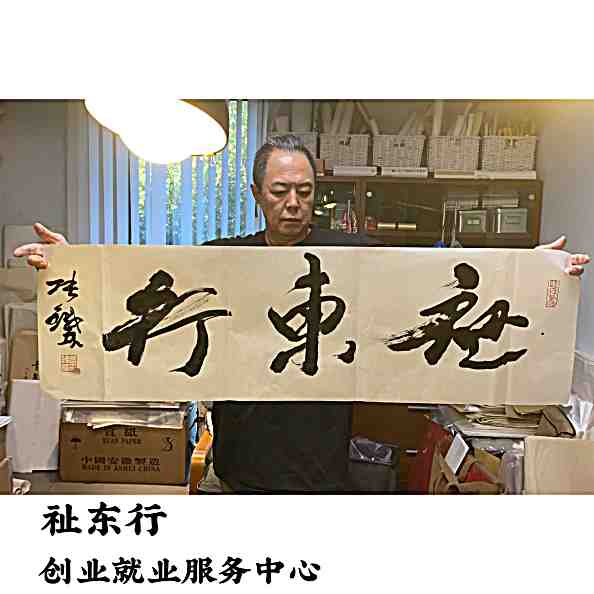 祉東行
宣紙
XUAN PAPER
中國安徽製造
MADE IN ANHUI CHINA
祉东行
创业就业服务中心